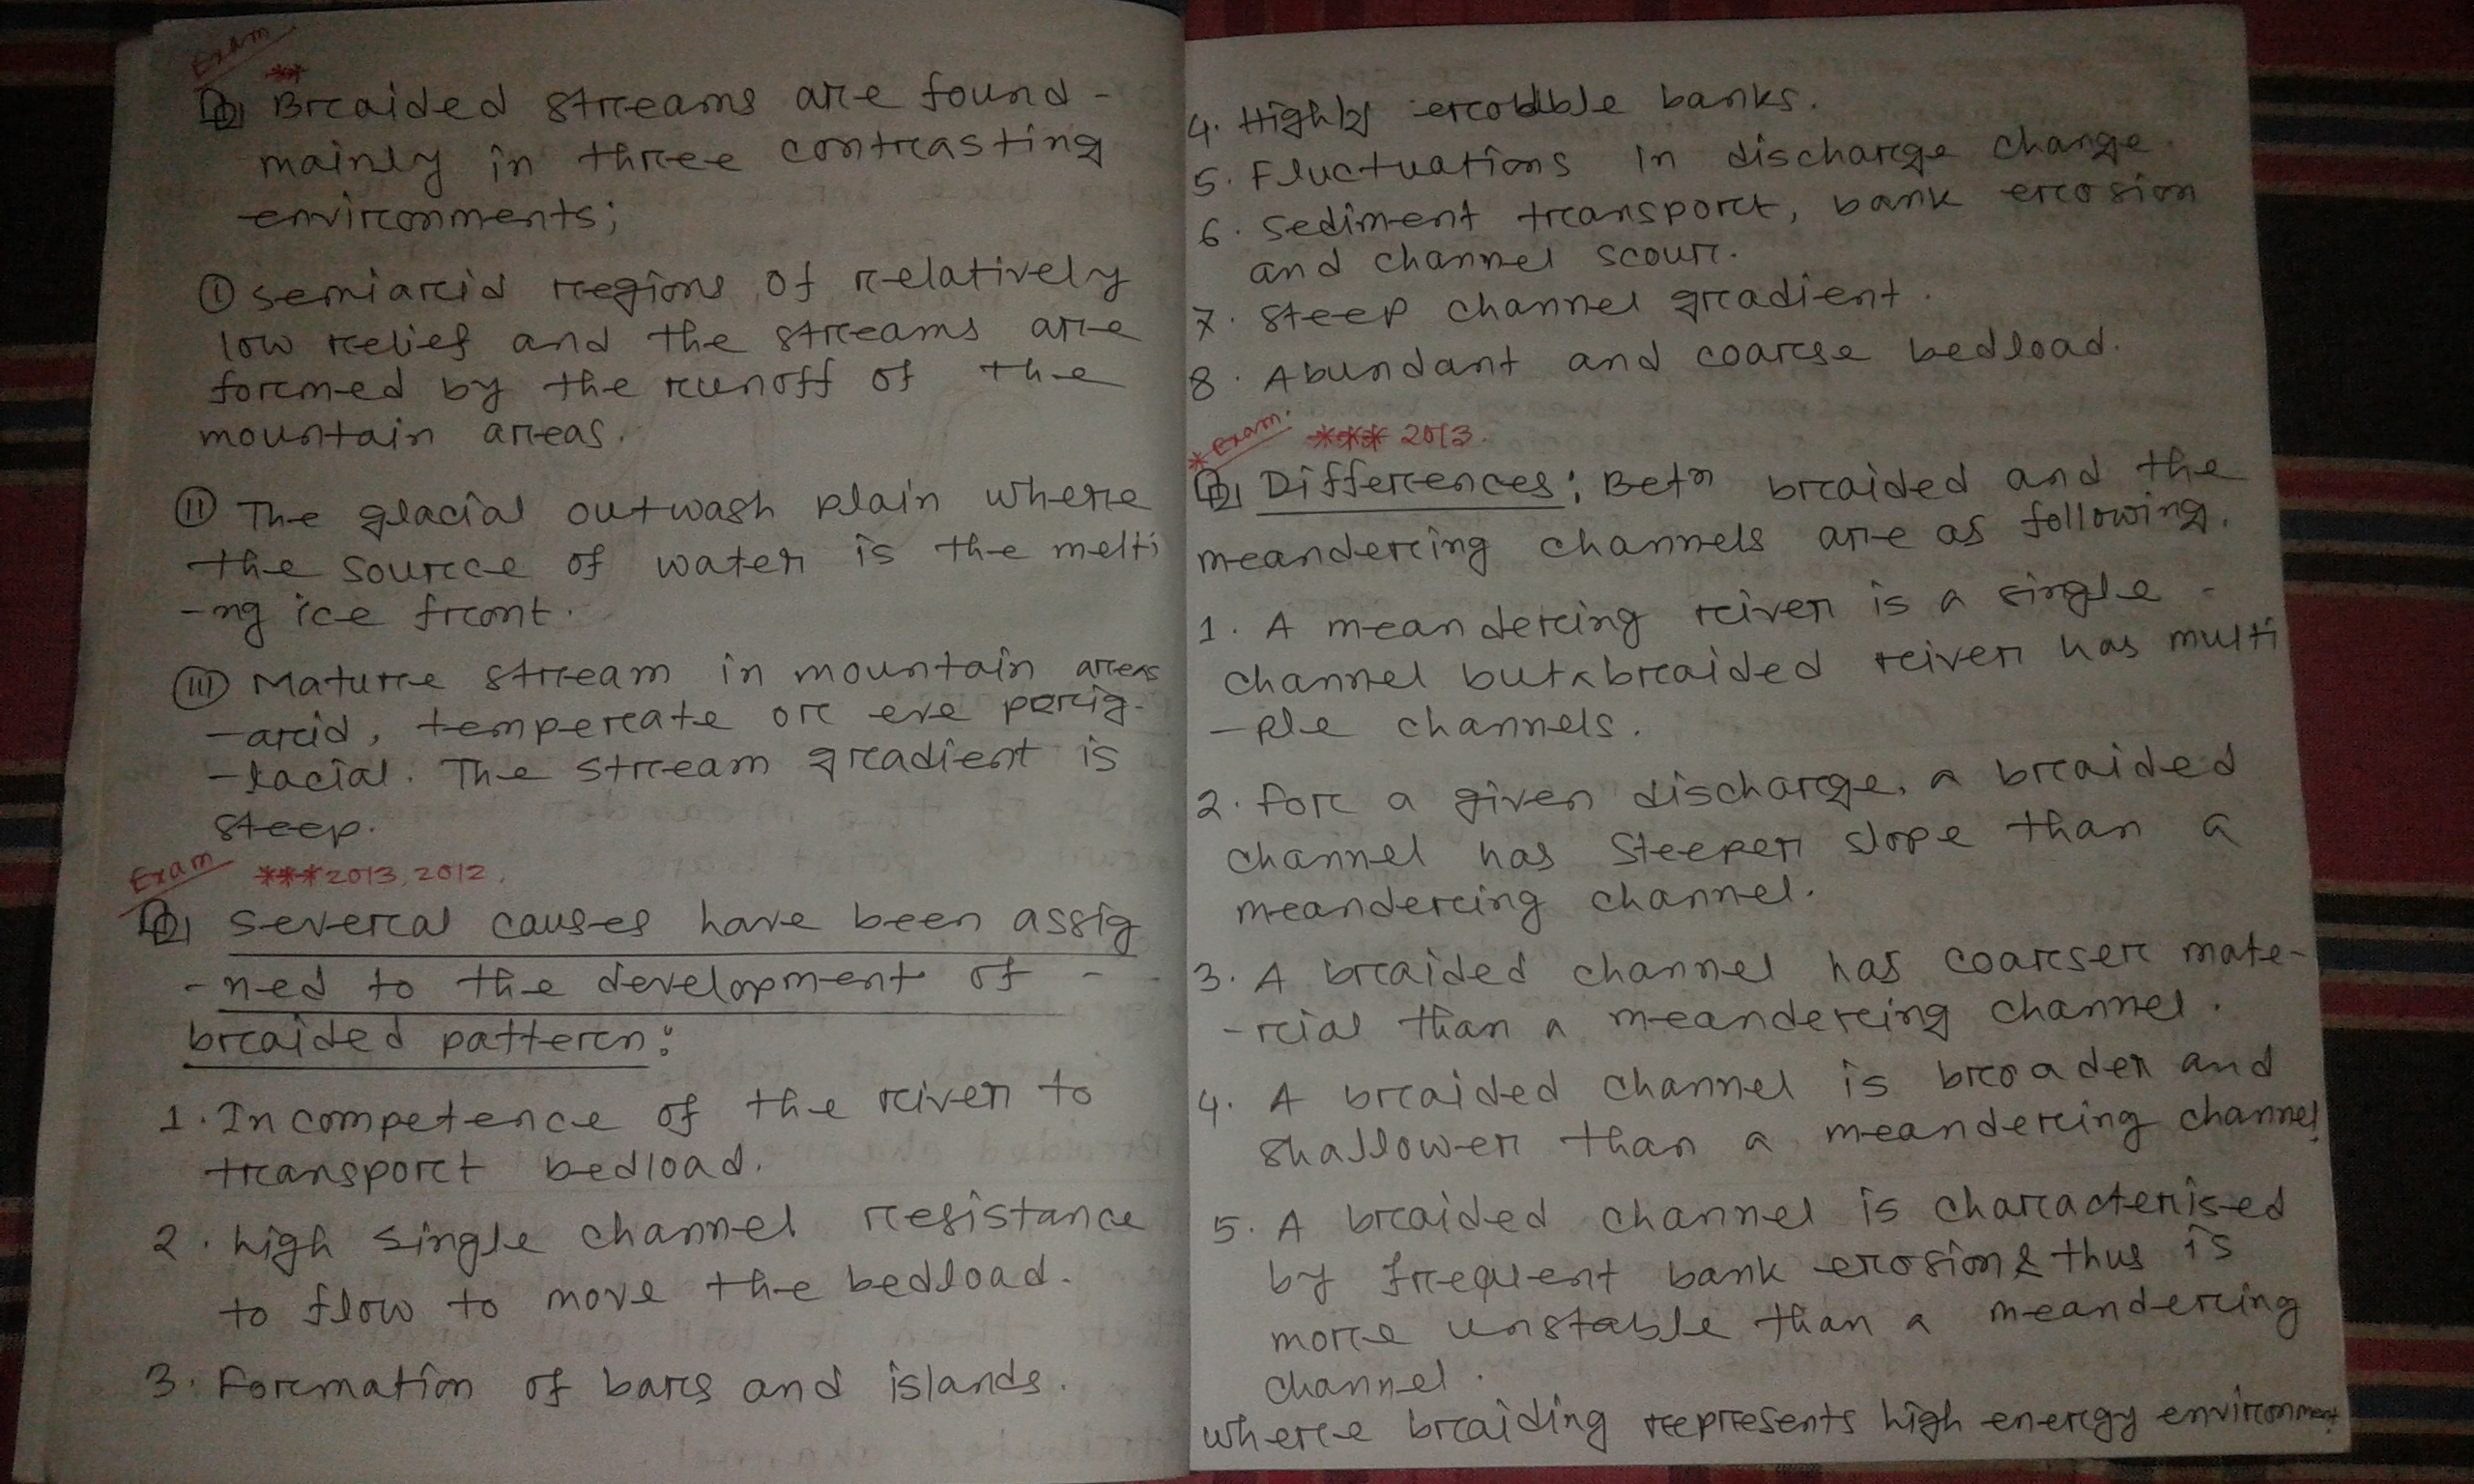 Exam
**
Braided streams are found -
mainly in three contrasting
environments;
(I) Semiarid regions of relatively
low relief and the streams are
formed by the runoff of the
mountain areas.
(II) The glacial outwash plain where
the source of water is the melti
-ng ice front.
(III) Mature stream in mountain areas
-arid, temperate or eve perig-
-lacial. The stream gradient is
steep.
Exam ***2013, 2012.
Several causes have been assig
-ned to the development of -
braided pattern:
1. Incompetence of the river to
transport bedload.
2. high single channel resistance
to flow to move the bedload.
3. Formation of bars and islands.
4. Highly erodible banks.
5. Fluctuations in discharge change.
6. Sediment transport, bank erosion
and channel scour.
7. Steep channel gradient.
8. Abundant and coarse bedload.
*Exam. *** 2013.
Differences: Betn braided and the
meandering channels are as following.
1. A meandering river is a single -
channel but a braided river has multi
-ple channels.
2. For a given discharge, a braided
channel has Steeper slope than a
meandering channel.
3. A braided channel has coarser mate-
-rial than a meandering channel.
4. A braided channel is broader and
shallower than a meandering channel.
5. A braided channel is characterised
by frequent bank erosion & thus is
more unstable than a meandering
channel.
where braiding represents high energy environment.